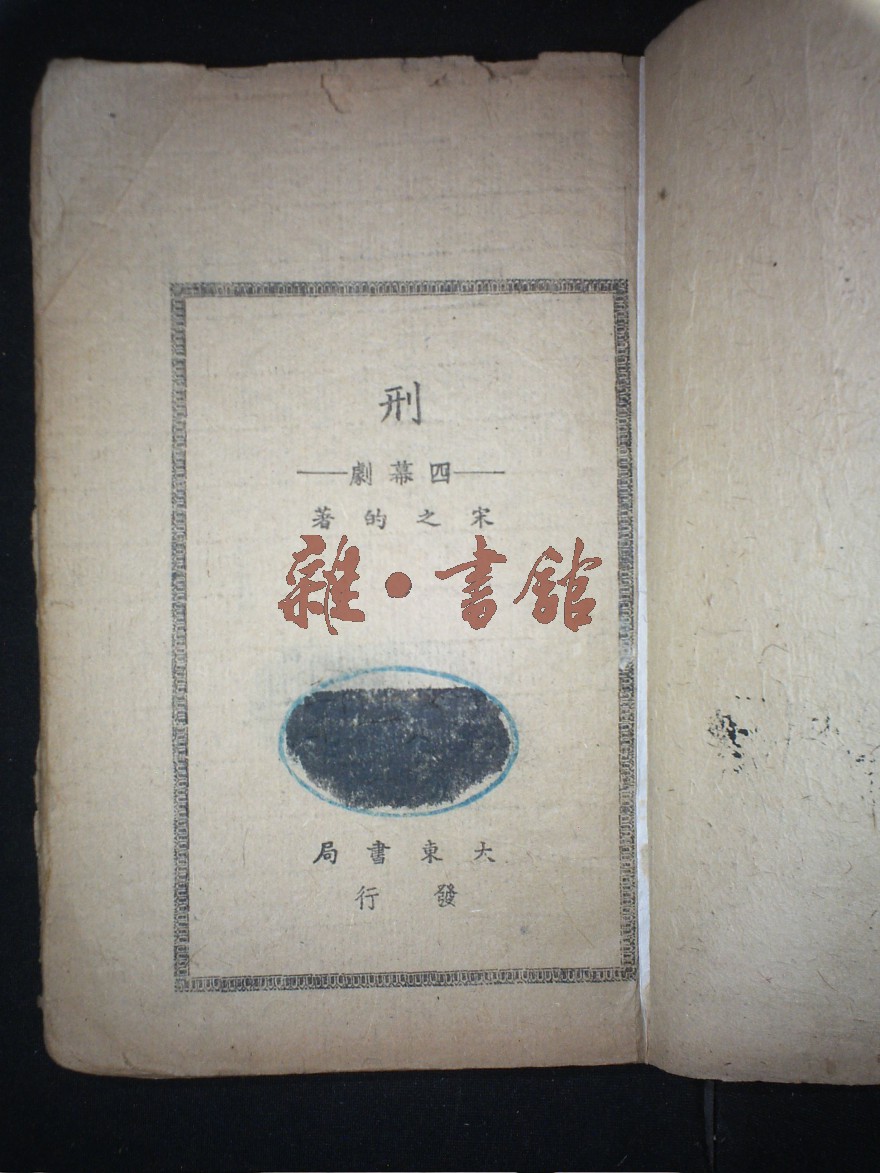 刑
——四幕劇——
宋之的著
雜·書館
大東書局
發行